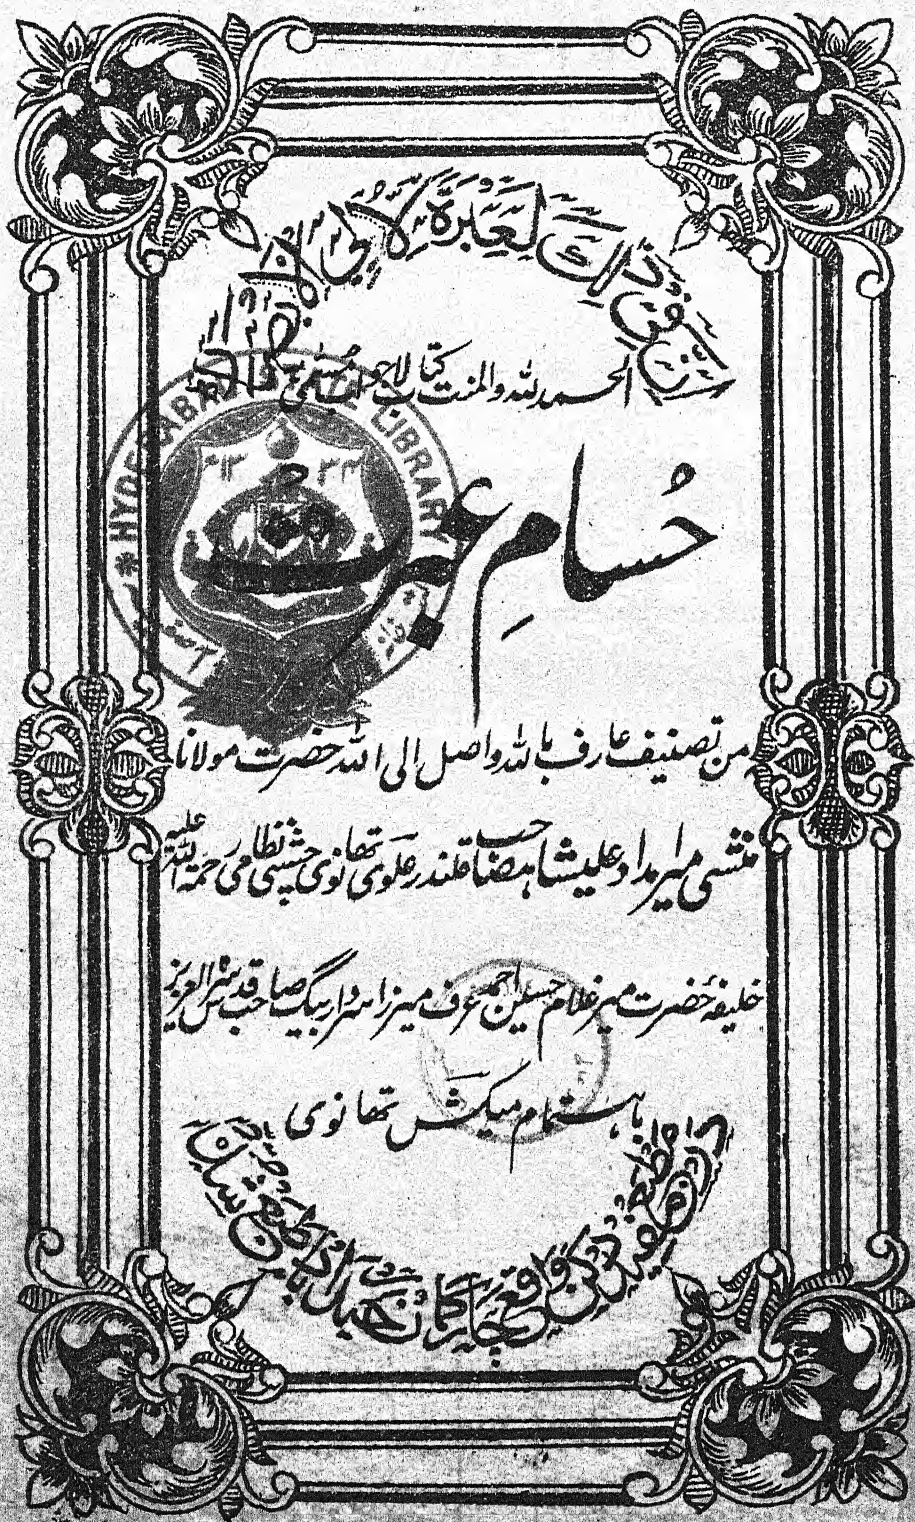 ان فی ذٰلک لعبرة لاولی الابصار
الحمد للہ والمنت کتاب لاجواب مسمیٰ بہ
حسامِ عبرت
HYDERABAD STATE LIBRARY
من تصنیف عارف باللہ واصل الی اللہ حضرت مولانا
منشی میر امداد علیشاہ صاحب قلندر علوی تھانوی چشتی نظامی رحمۃ اللہ علیہ
خلیفۂ حضرت میر غلام حسین احمد عرف میرزا سردار بیگ صاحب قدس سرہ العزیز
باہتمام میکش تھانوی
در مطبع مفید دکن واقع چارکمان حیدرآباد طبع شد